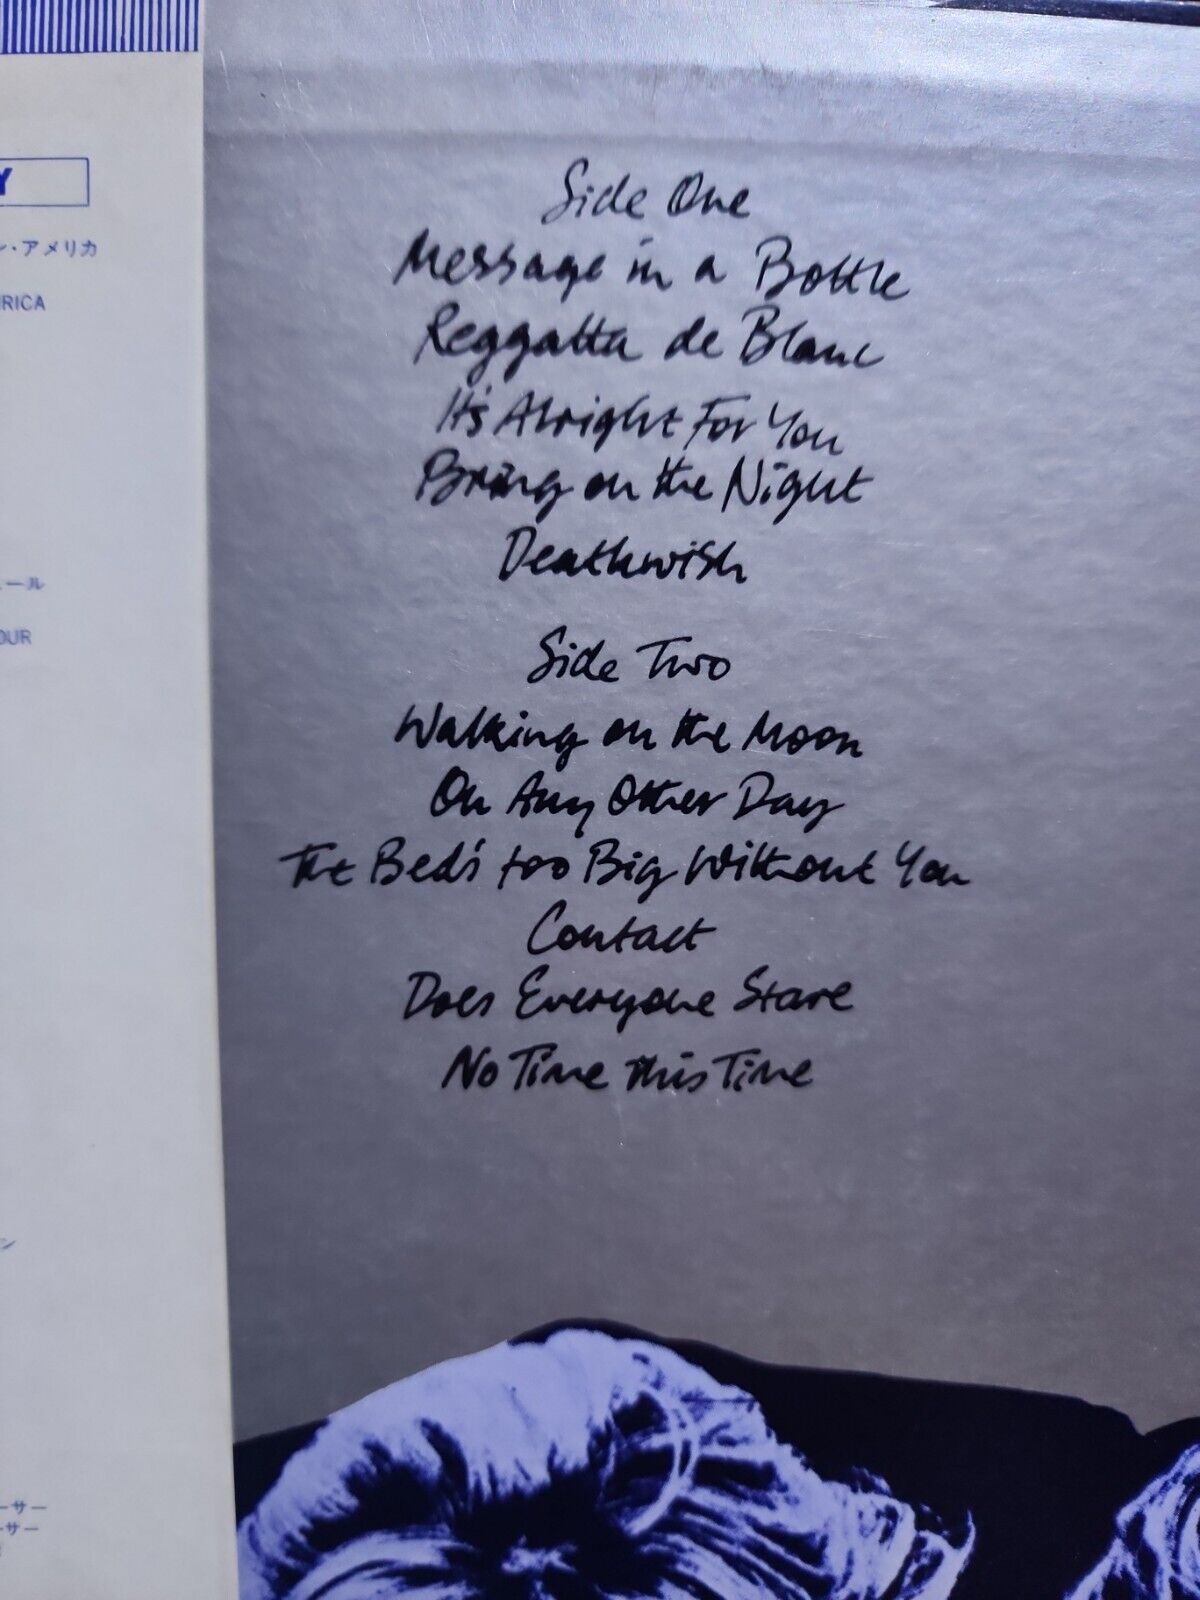 Y
ン・アメリカ
RICA
ュール
OUR
ン
ーサー
ーサー
Side One
Message in a Bottle
Reggatta de Blanc
It's Alright For You
Bring on the Night
Deathwish
Side Two
Walking on the Moon
On Any Other Day
The Bed's too Big Without You
Contact
Does Everyone Stare
No Time this Time